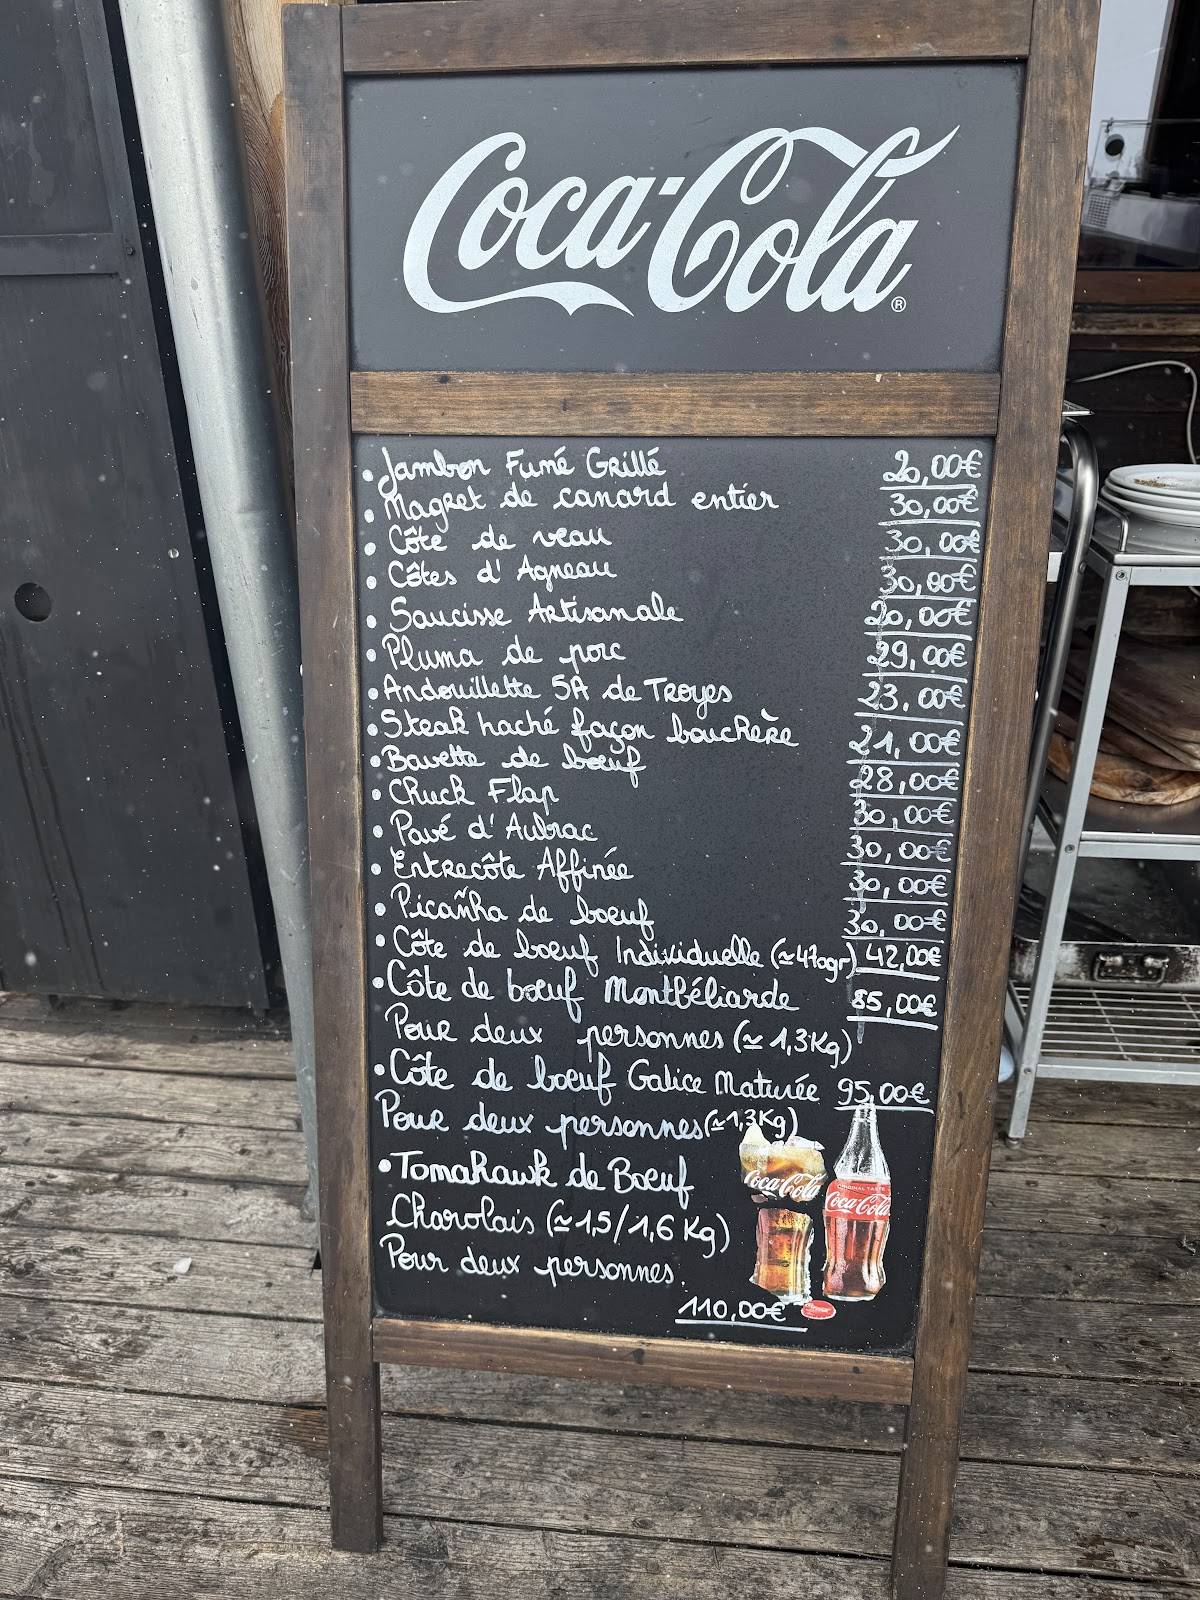 Coca-Cola ®
• Jambon Fumé Grillé 20,00€
• Magret de canard entier 30,00€
• Côte de veau 30,00€
• Côtes d'Agneau 30,00€
• Saucisse Artisanale 20,00€
• Pluma de porc 29,00€
• Andouillette 5A de Troyes 23,00€
• Steak haché façon bouchère 21,00€
• Bavette de bœuf 28,00€
• Chuck Flap 30,00€
• Pavé d'Aubrac 30,00€
• Entrecôte Affinée 30,00€
• Picañha de boeuf 30,00€
• Côte de boeuf Individuelle (≃470gr) 42,00€
• Côte de bœuf Montbéliarde 85,00€
Pour deux personnes (≃ 1,3Kg)
• Côte de bœuf Galice Maturée 95,00€
Pour deux personnes (≃1,3Kg)
• Tomahawk de Boeuf
Charolais (≃1,5/1,6 Kg)
Pour deux personnes.
110,00€
Coca-Cola
ORIGINAL TASTE
Coca-Cola